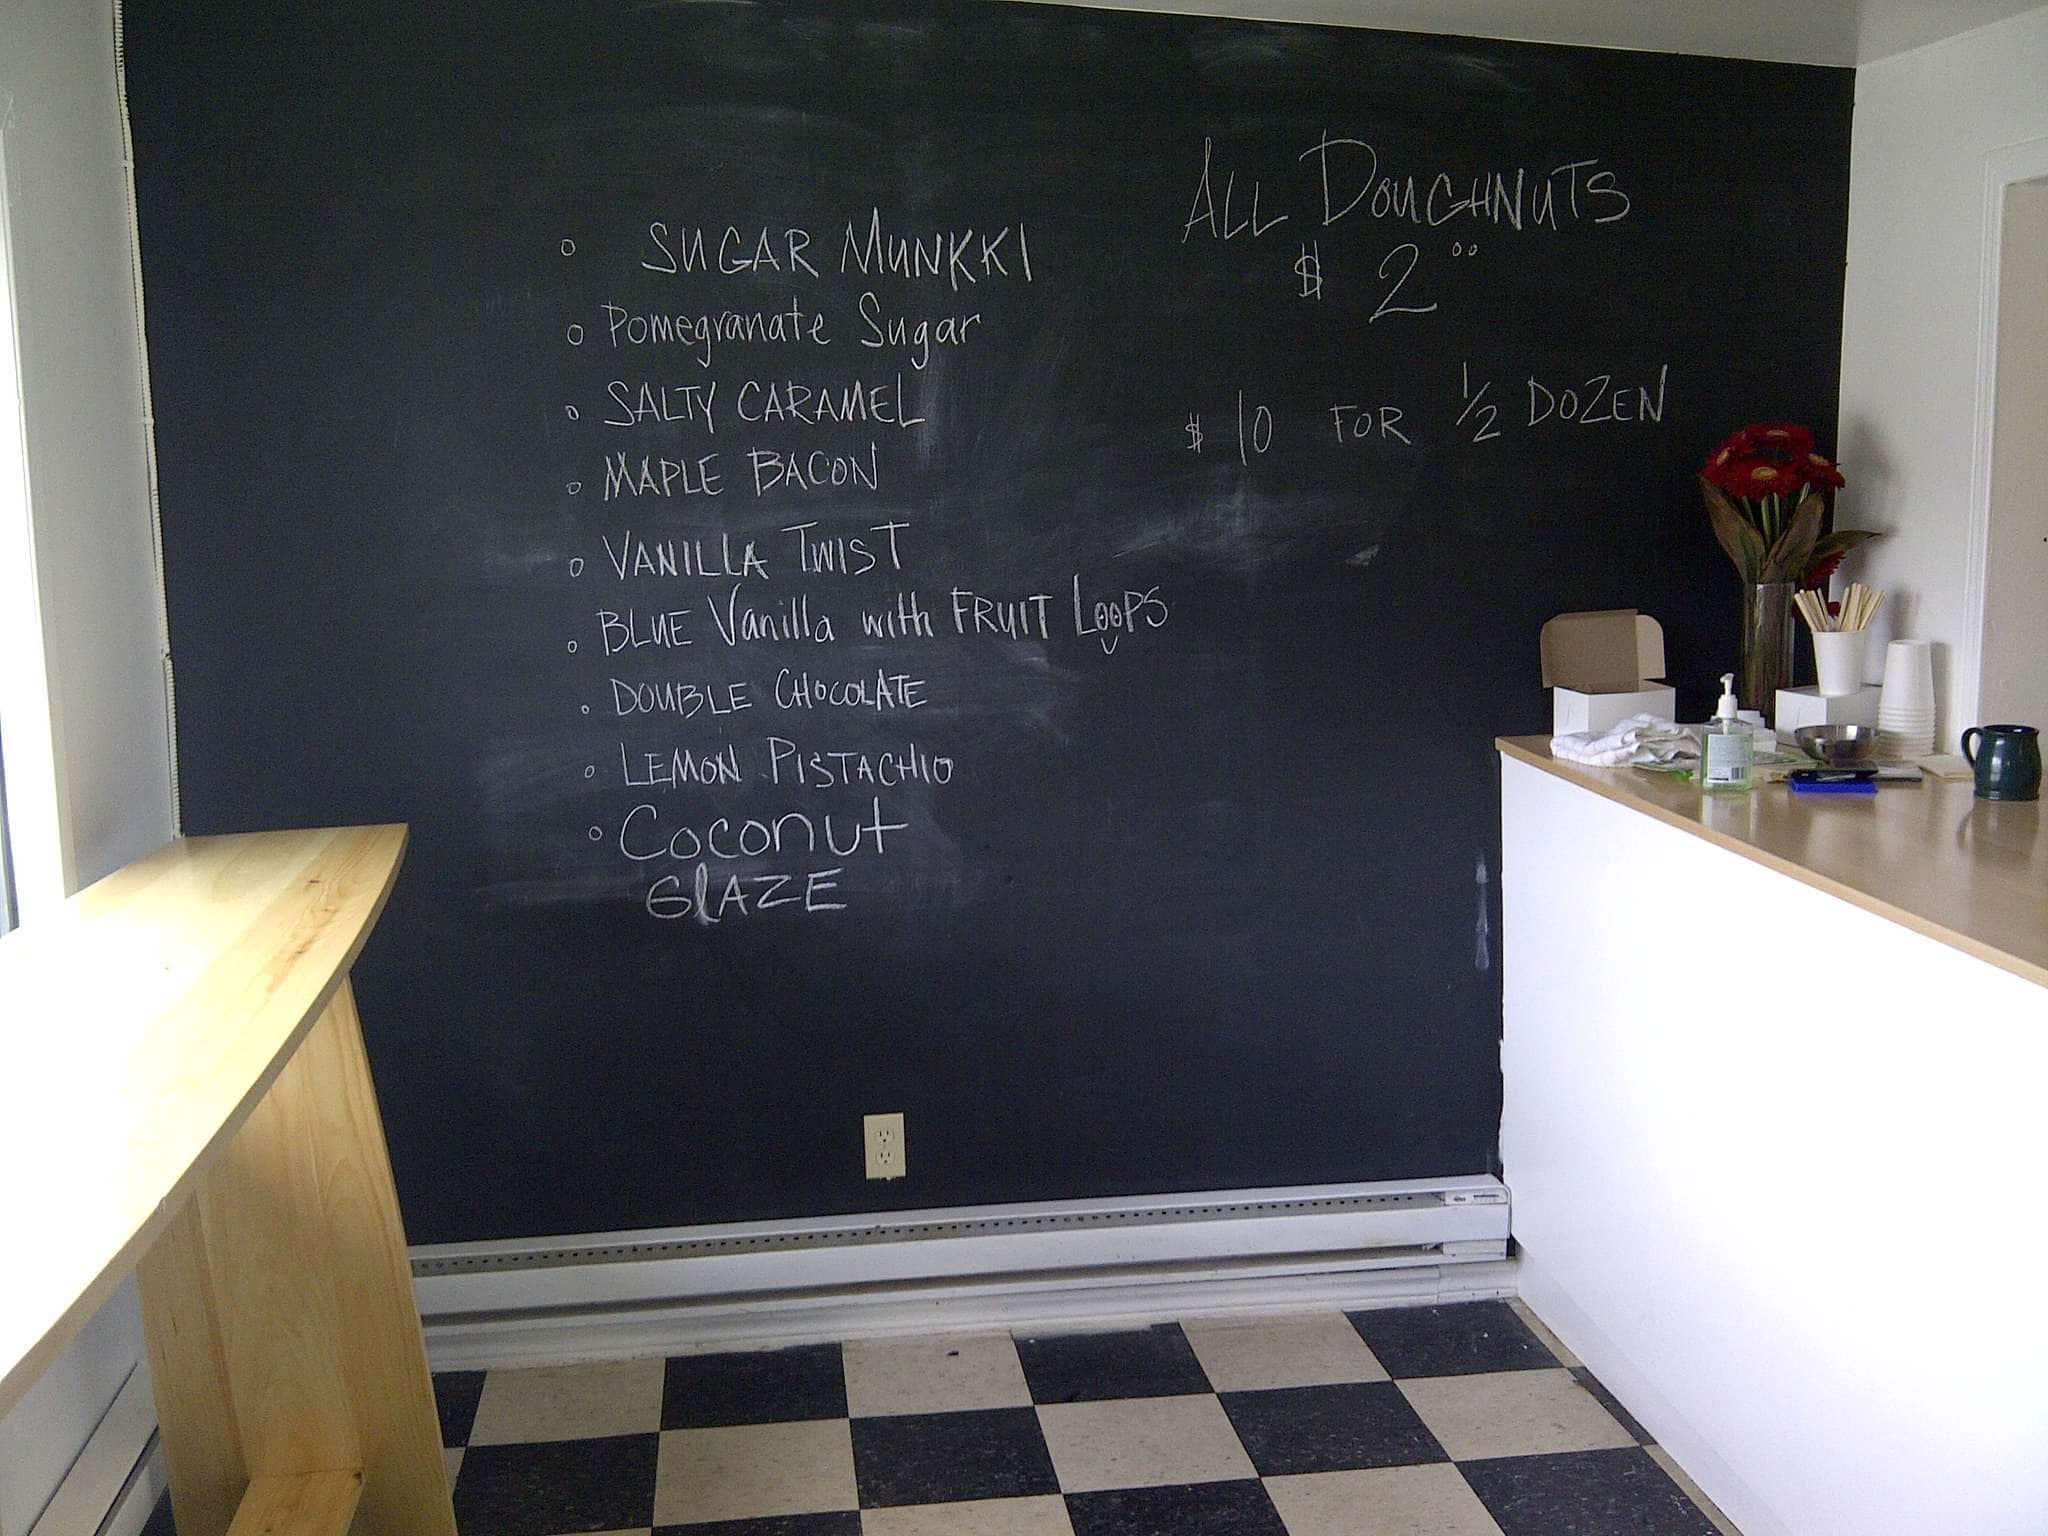 SUGAR MUNKKI
Pomegranate Sugar
SALTY CARAMEL
MAPLE BACON
VANILLA TWIST
BLUE Vanilla with FRUIT LOOPS
DOUBLE CHOCOLATE
LEMON PISTACHIO
Coconut
GlAZE
ALL DOUGHNUTS
$ 2.00
$ 10 FOR 1/2 DOZEN